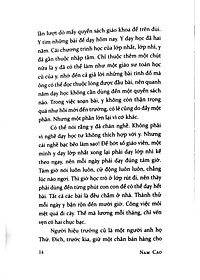 lần lượt dò mấy quyển sách giáo khoa để trên đùi.
Y tìm những bài để dạy hôm nay. Y dạy học đã hai
năm. Cái chương trình học của lớp nhất, lớp nhì, y
đã gần thuộc nhập tâm. Chỉ thuộc thêm một chút
nữa là y đã có thể làm như một giáo sư toán học
cũ của y, nhớ đến cả giở lời những bài tính đố mà
ông đã có thể đọc cho học trò viết, bởi quanh năm
năm dạy học không cần dùng đến một quyển sách
nào. Trong việc soạn bài, y không còn thận trọng
quá như hồi mới đến trường, có lẽ cũng do đấy một
phần. Nhưng một phần lớn lại vì cớ khác.
Có thể nói rằng y đã chán nghề. Không phải
vì nghề dạy học tư không thích hợp với y. Nhưng
cái nghề bạc bẽo làm sao! Để bớt số giáo viên, một
mình y dạy lớp nhất xong lại phải dạy lớp nhì kế
tiếp theo ngay, nên mỗi ngày phải đứng tám giờ.
Tám giờ nói luôn luôn, cử động luôn luôn, chẳng
lúc nào ngơi. Thì giờ học trò ở lớp rất ít, nên thầy
phải dùng đến từng phút con con để có thể dạy hết
bài. Tất cả các bài đều chấm ở nhà. Thành thử
mỗi ngày y bận rộn đến mười giờ. Công việc mỏi
mệt quá đi cày. Thế mà lương mỗi tháng, chỉ vẻn
vẹn có hai chục bạc.
Người hiệu trưởng cũ là một người anh họ
Thứ. Đích, trước kia, giữ một chân bán hàng cho
14
NAM CAO